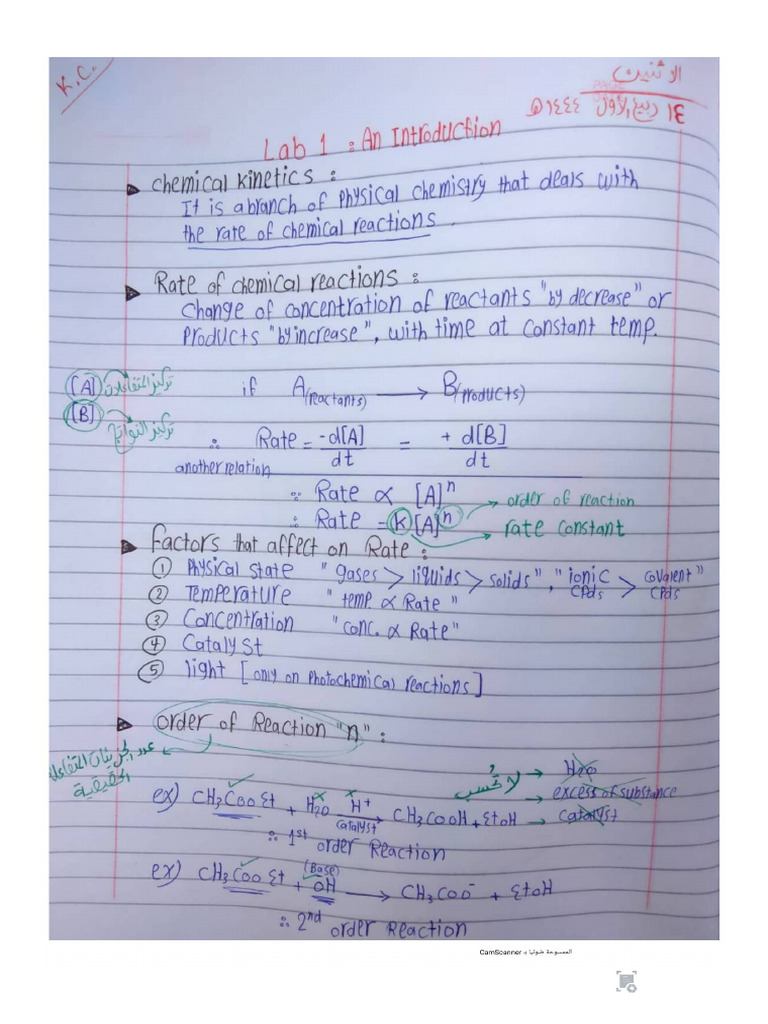 K.C.
الاثنين
١٤ ربيع الأول ١٤٤٤هـ
Lab 1 : An Introduction
Chemical Kinetics :
It is a branch of physical chemistry that deals with
the rate of chemical reactions.
Rate of chemical reactions :
change of concentration of reactants "by decrease" or
products "by increase", with time at constant temp.
[A] تركيز المتفاعلات if A(reactants) → B(products)
[B] تركيز النواتج
∴ Rate = -d[A]/dt = + d[B]/dt
another relation
∵ Rate ∝ [A]ⁿ → order of reaction
∴ Rate = k[A]ⁿ → rate constant
Factors that affect on Rate :
① Physical state "gases > liquids > solids", "ionic cpds > covalent cpds"
② Temperature "temp ∝ Rate"
③ Concentration "conc. ∝ Rate"
④ Catalyst
⑤ light [only on photochemical reactions]
order of Reaction "n" :
عدد الجزيئات المتفاعلة
الحقيقية
لا تُحسب → H₂O
→ excess of substance
→ catalyst
ex) CH₃COOEt + H₂O H⁺ catalyst → CH₃COOH + EtOH
∴ 1st order Reaction
ex) CH₃COOEt + OH (Base) → CH₃COO⁻ + EtOH
∴ 2nd order Reaction
الممسوحة ضوئيا بـ CamScanner